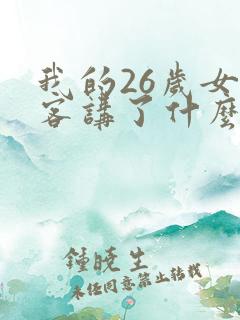 我的26歲女
客講了什麼
鍾曉生
未任同意禁止轉載